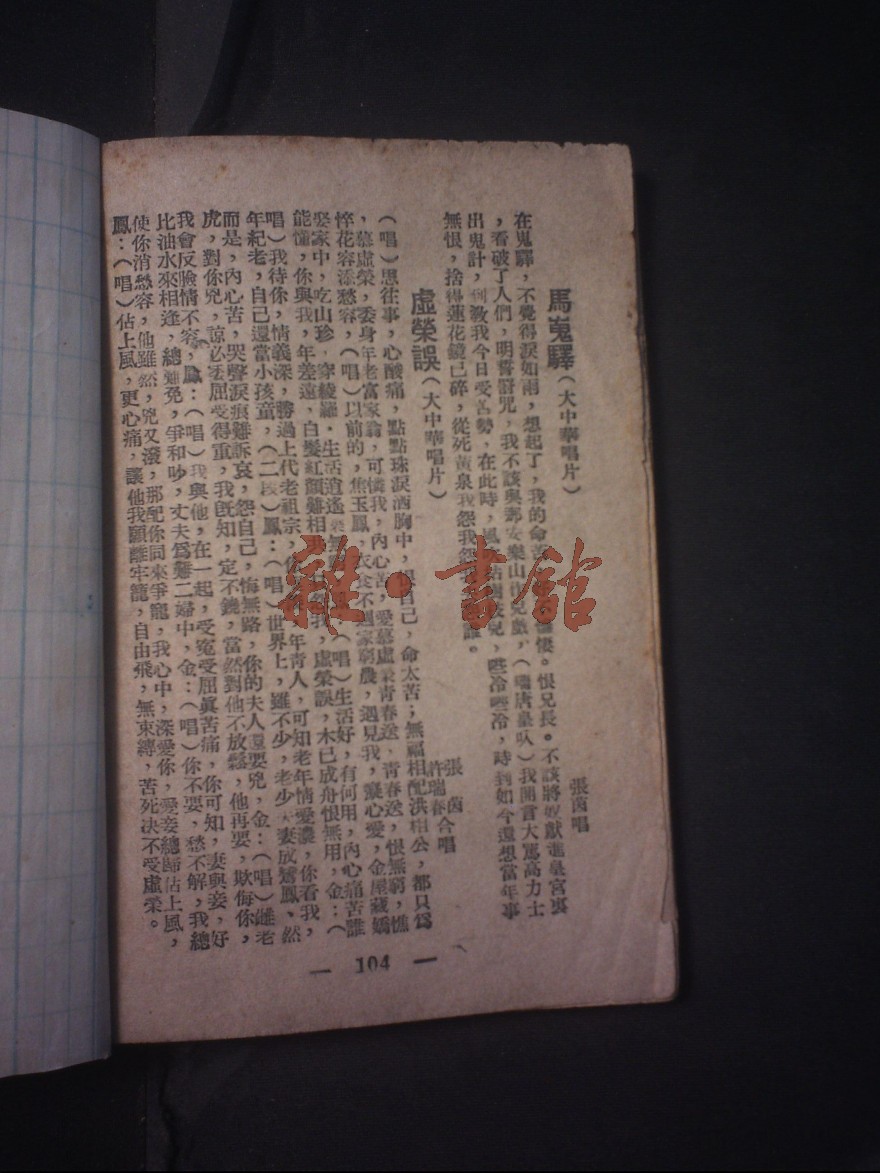 馬嵬驛（大中華唱片）
張茵唱
在嵬驛，不覺得淚如雨，想起了，我的命苦。恨兄長。不該將奴獻進皇宮裏
，看破了人們，明誓發咒，我不該與那安樂山作兒戲，（嘴唐皇叺）我開言大罵高力士
出鬼計，到教我今日受苦勢，在此時，風兒，陣冷陣冷，時到如今還想當年事
無恨，捨得蓮花鏡已碎，從死黃泉我怨誰。
虛榮誤（大中華唱片）
張茵
許瑞春合唱
（唱）思往事，心酸痛，點點珠淚洒胸中，恨自己，命太苦；無福相配洪相公，都只為
，慕虛榮，委身年老富家翁，可憐我，內心苦，愛慕虛榮青春送，青春送，恨無窮，憔
悴花容添愁容，（唱）以前的，焦玉鳳，衣食不週家窮農，遇見我，癡心愛，金屋藏嬌
娶家中，吃山珍，穿綾羅．生活逍遙（唱）生活好，有何用，內心痛苦誰
能懂，你與我，年差遠，白髮紅顏難相我，虛榮誤，木已成舟恨無用，金：（
唱）我待你，情義深，勝過上代老祖宗，年青人，可知老年情愛濃，你看我，
年紀老，自己還當小孩童，（二段）鳳：（唱）世界上，雖不少，老少夫妻成鸞鳳、然
而是，內心苦，哭聲淚痕難訴哀，怨自己，悔無路，你的夫人還要兇，金：（唱）雌老
虎，對你兇，諒必委屈受得重，我旣知，定不饒，當然對他不放鬆，他再要，欺侮你，
我會反臉情不容，鳳：（唱）我與他，在一起，受寃受屈眞苦痛，你可知，妻與妾，好
比油水來相逢，總難免，爭和吵，丈夫爲難二婦中，金：（唱）你不要，愁不解，我總
使你消愁容，他雖然，兇又潑，那配你同來爭寵，我心中，深愛你，愛妾總歸佔上風，
鳳：（唱）佔上風，更心痛，讓他我願離牢籠，自由飛，無束縛，苦死决不受虛榮。
— 104 —
雜·書館